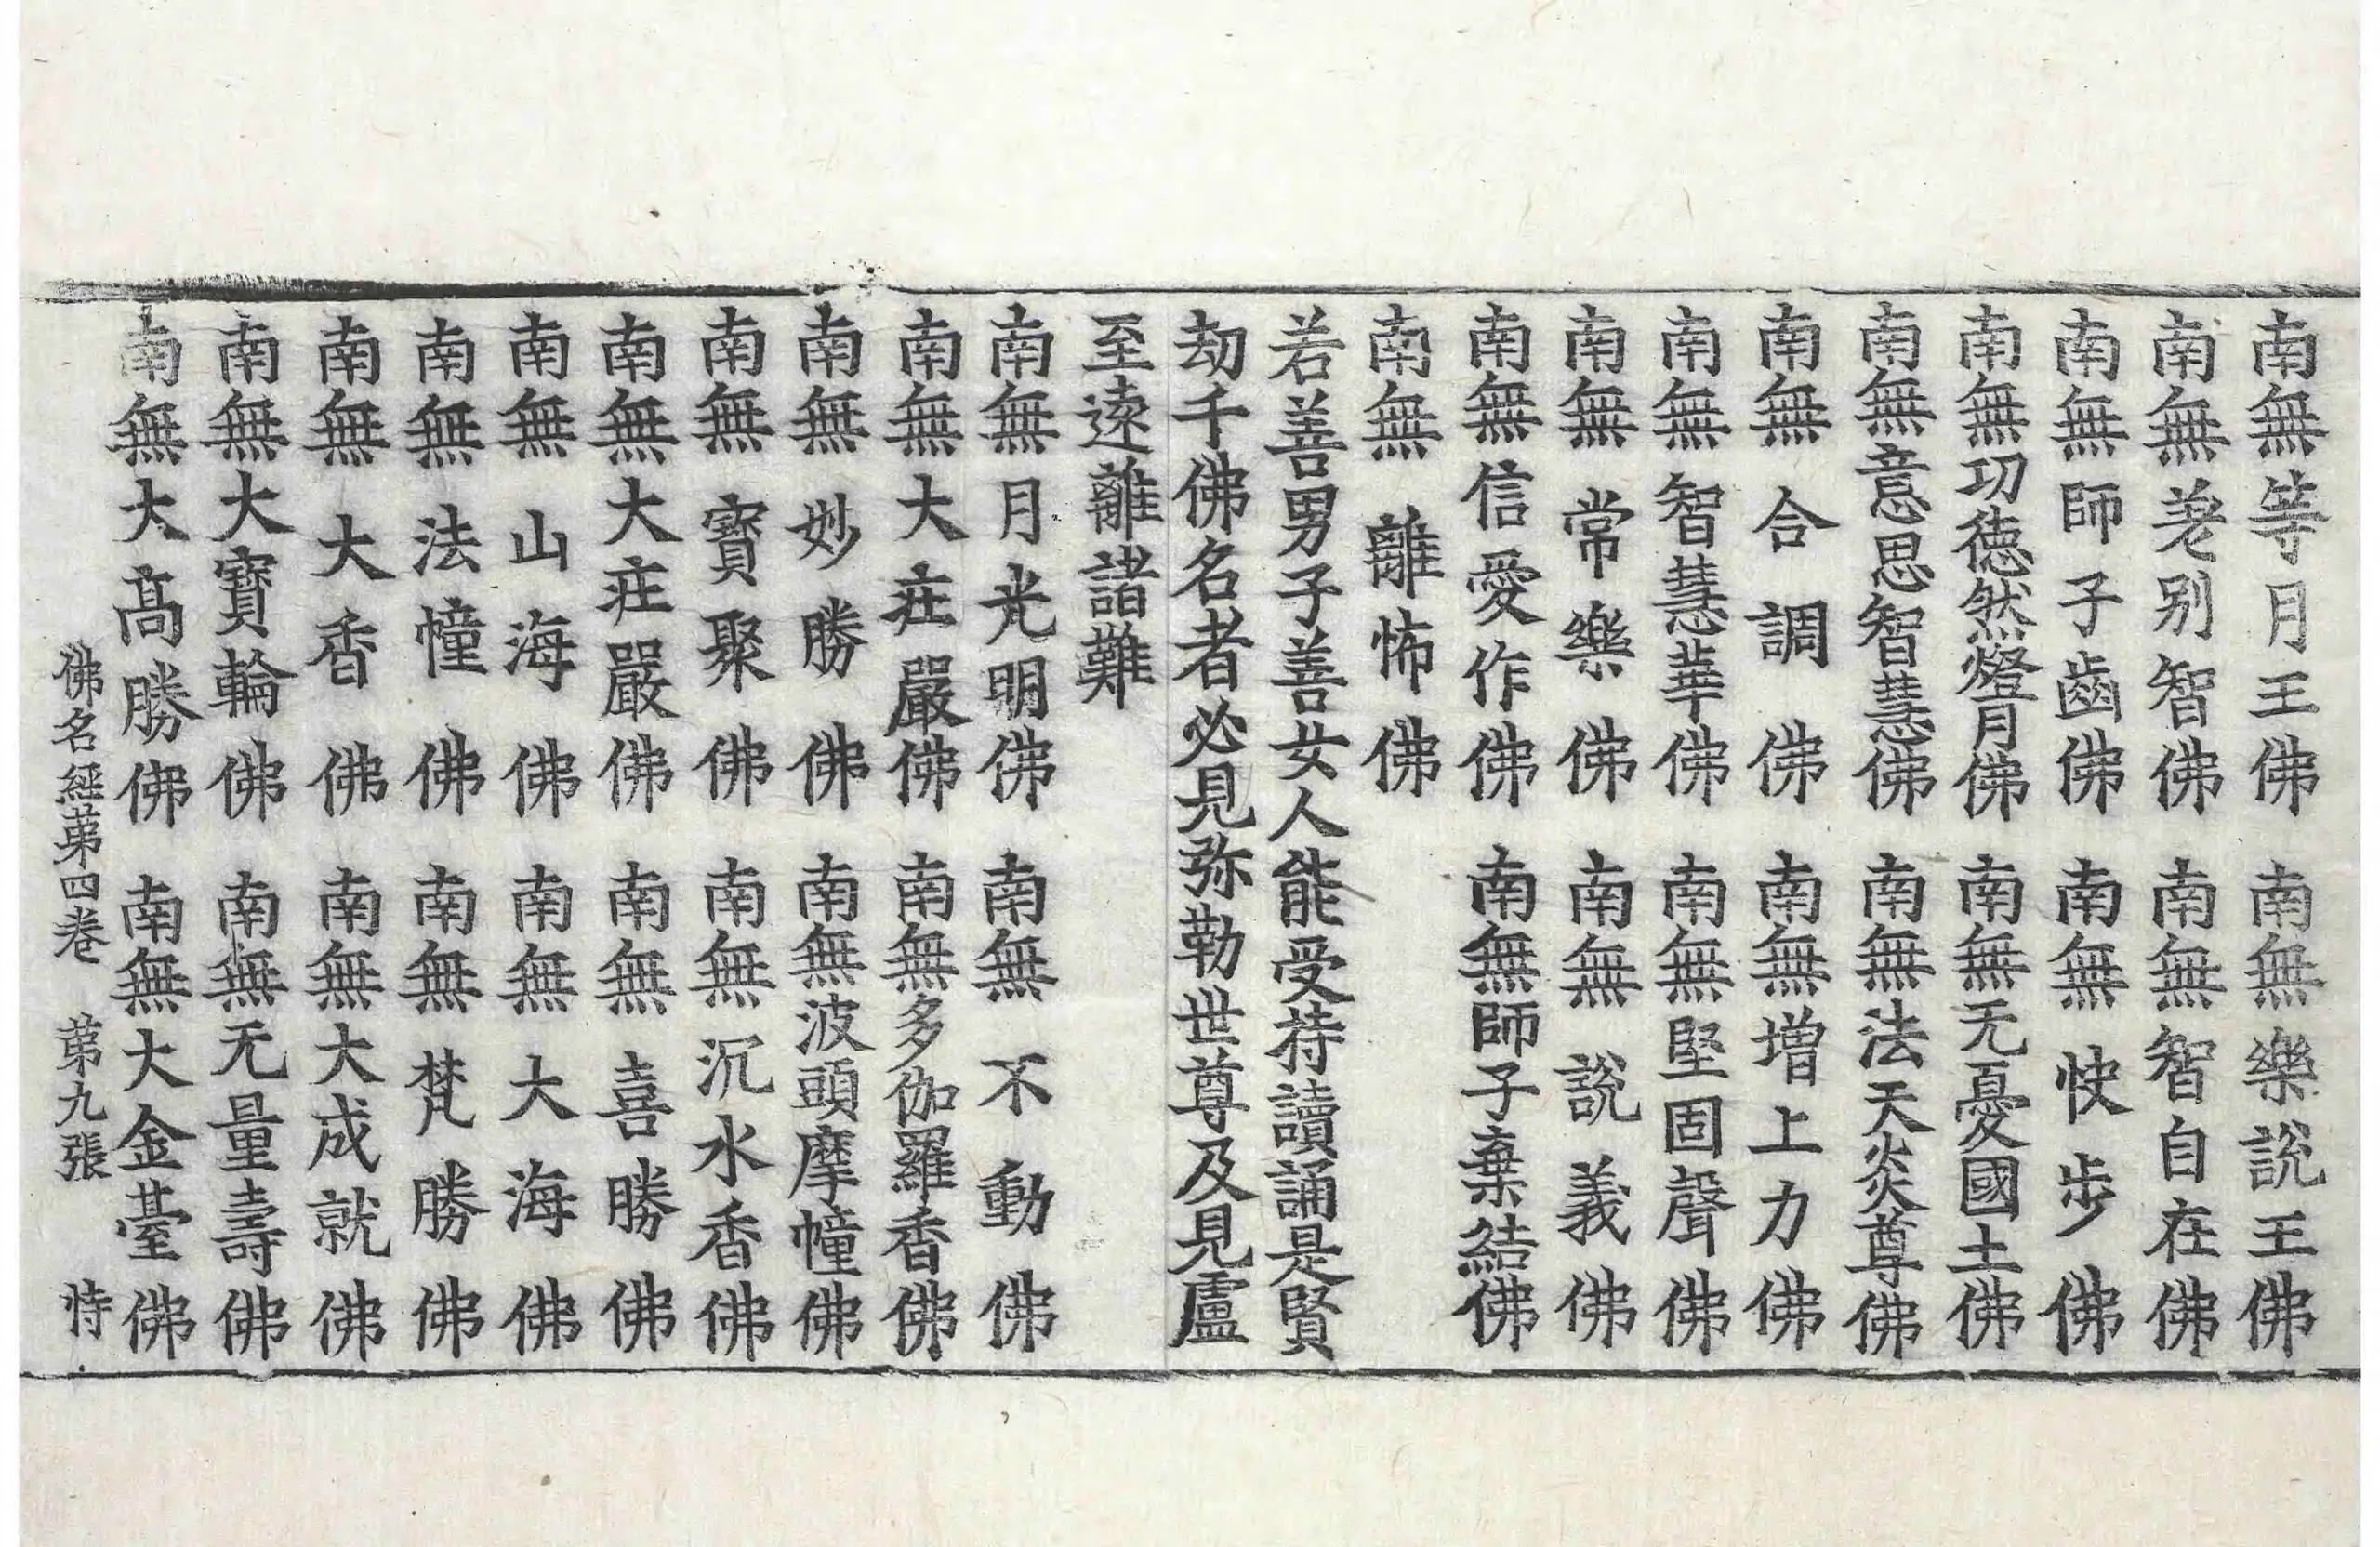 南無等月王佛　南無樂說王佛
南無差別智佛　南無智自在佛
南無師子齒佛　南無快步佛
南無功德然燈月佛　南無无憂國土佛
南無意思智慧佛　南無法天炎尊佛
南無合調佛　南無增上力佛
南無智慧華佛　南無堅固聲佛
南無常樂佛　南無說義佛
南無信愛作佛　南無師子棄結佛
南無離怖佛
若善男子善女人能受持讀誦是賢
劫千佛名者必見弥勒世尊及見盧
至遠離諸難
南無月光明佛　南無不動佛
南無大莊嚴佛　南無多伽羅香佛
南無妙勝佛　南無波頭摩幢佛
南無寶聚佛　南無沉水香佛
南無大莊嚴佛　南無喜勝佛
南無山海佛　南無大海佛
南無法幢佛　南無梵勝佛
南無大香佛　南無大成就佛
南無大寶輪佛　南無无量壽佛
南無大高勝佛　南無大金臺佛
佛名經第四卷　第九張　恃